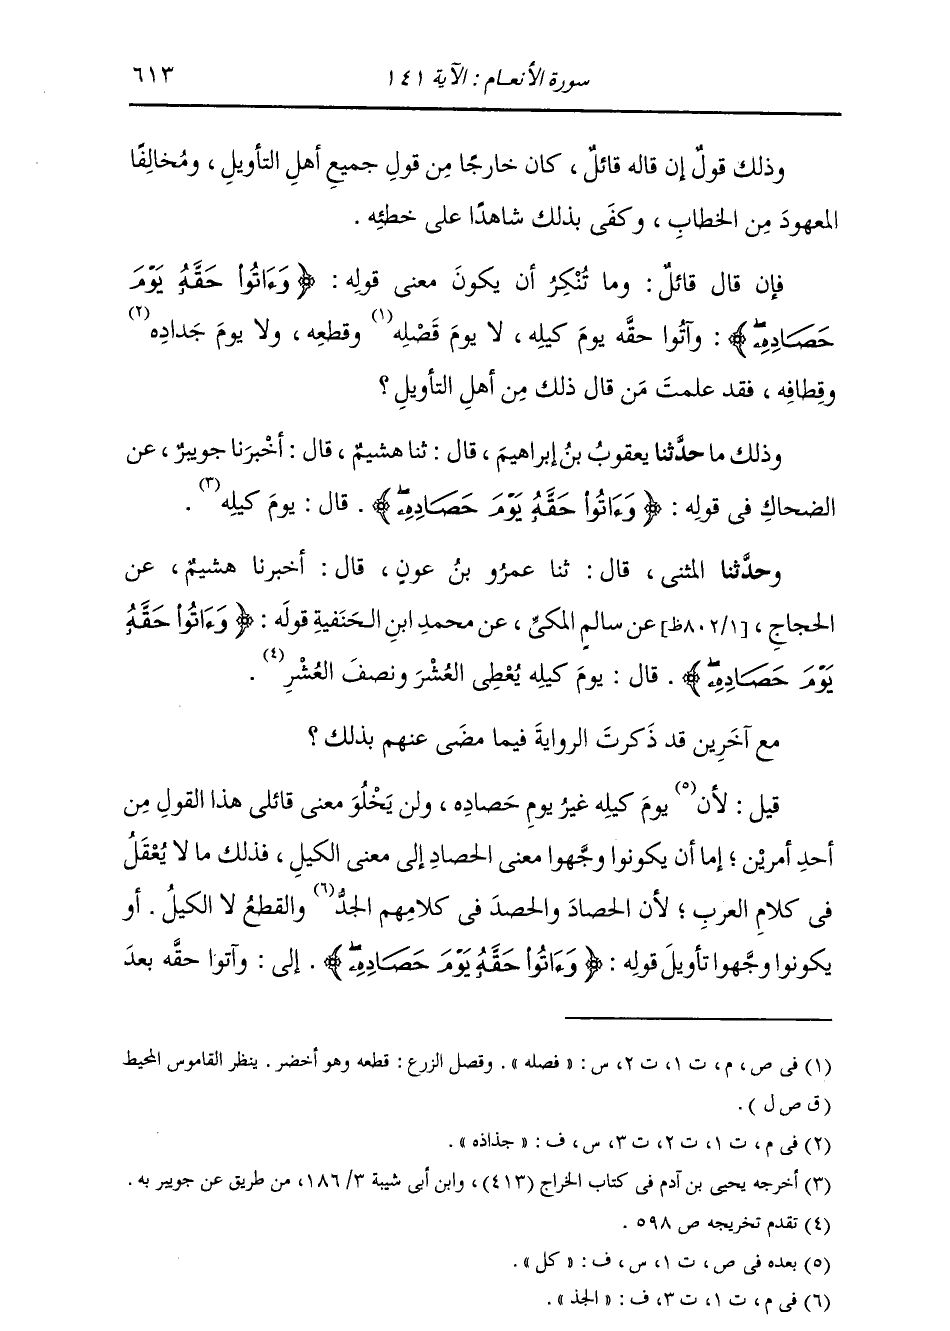 سورة الأنعام : الآية ١٤١ ٦١٣
وذلك قولٌ إن قاله قائلٌ ، كان خارجًا مِن قولِ جميعِ أهلِ التأويلِ ، ومُخالِفًا
المعهودَ مِن الخطابِ ، وكفَى بذلك شاهدًا على خطئِه .
فإن قال قائلٌ : وما تُنْكِرُ أن يكونَ معنى قولِه : ﴿ وَءَاتُوا۟ حَقَّهُۥ يَوْمَ
حَصَادِهِۦۖ ﴾ : وآتُوا حقَّه يومَ كيلِه ، لا يومَ قَصْلِه (١) وقطعِه ، ولا يومَ جَدادِه (٢)
وقِطافِه ، فقد علمتَ مَن قال ذلك مِن أهلِ التأويلِ ؟
وذلك ما حدَّثنا يعقوبُ بنُ إبراهيمَ ، قال : ثنا هشيمٌ ، قال : أخْبرَنا جويبرٌ ، عن
الضحاكِ فى قولِه : ﴿ وَءَاتُوا۟ حَقَّهُۥ يَوْمَ حَصَادِهِۦۖ ﴾ . قال : يومَ كيلِه (٣) .
وحدَّثنا المثنى ، قال : ثنا عمرُو بنُ عونٍ ، قال : أخبرنا هشيمٌ ، عن
الحجاجِ ، [٨٠٢/١ظ] عن سالمٍ المكىِّ ، عن محمدِ ابنِ الحَنَفيةِ قولَه : ﴿ وَءَاتُوا۟ حَقَّهُۥ
يَوْمَ حَصَادِهِۦۖ ﴾ . قال : يومَ كيلِه يُعْطِى العُشْرَ ونصفَ العُشْرِ (٤) .
مع آخَرِين قد ذَكرتَ الروايةَ فيما مضَى عنهم بذلك ؟
قيل : لأن (٥) يومَ كيلِه غيرُ يومِ حَصادِه ، ولن يَخْلُوَ معنى قائلى هذا القولِ مِن
أحدِ أمريْن ؛ إما أن يكونوا وجَّهوا معنى الحصادِ إلى معنى الكيلِ ، فذلك ما لا يُعْقَلُ
فى كلامِ العربِ ؛ لأن الحصادَ والحصدَ فى كلامِهم الجدُّ (٦) والقطعُ لا الكيلُ . أو
يكونوا وجَّهوا تأويلَ قولِه : ﴿ وَءَاتُوا۟ حَقَّهُۥ يَوْمَ حَصَادِهِۦۖ ﴾ . إلى : وآتوا حقَّه بعدَ
(١) فى ص ، م ، ت ١، ت ٢، س : « فصله » . وقصل الزرع : قطعه وهو أخضر . ينظر القاموس المحيط
( ق ص ل ) .
(٢) فى م ، ت ١، ت ٢، ت ٣، س ، ف : « جذاذه » .
(٣) أخرجه يحيى بن آدم فى كتاب الخراج (٤١٣) ، وابن أبى شيبة ٣/ ١٨٦، من طريق عن جويبر به .
(٤) تقدم تخريجه ص ٥٩٨ .
(٥) بعده فى ص ، ت ١، س ، ف : « كل » .
(٦) فى م ، ت ١، ت ٣، ف : « الجذ » .